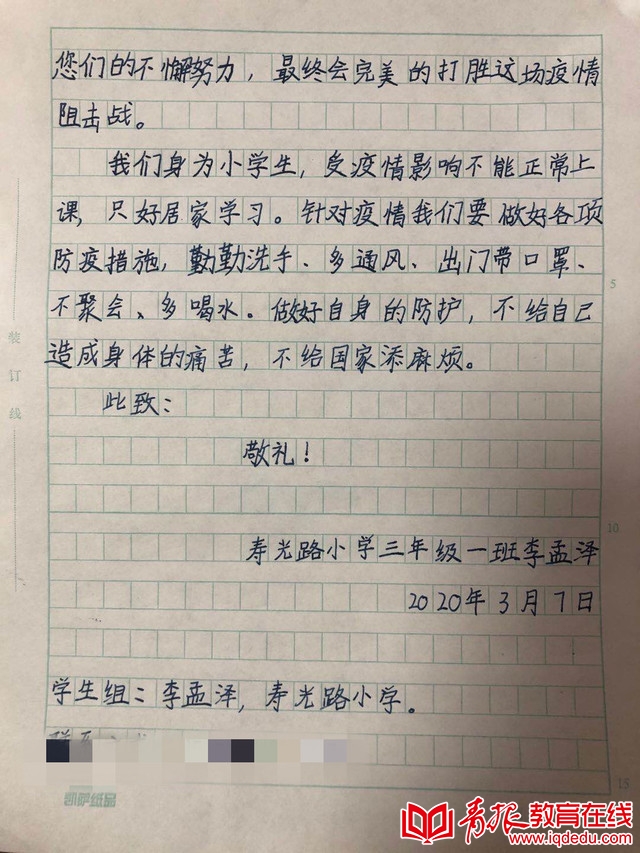 您们的不懈努力，最终会完美的打胜这场疫情
阻击战。
我们身为小学生，受疫情影响不能正常上
课，只好居家学习。针对疫情我们要做好各项
防疫措施，勤勤洗手、多通风、出门带口罩、
不聚会、多喝水。做好自身的防护，不给自己
造成身体的痛苦，不给国家添麻烦。
此致：
敬礼！
寿光路小学三年级一班李孟泽
2020年3月7日
学生组：李孟泽，寿光路小学。
装订线
5
10
15
凯萨纸品
青报教育在线
www.iqdedu.com